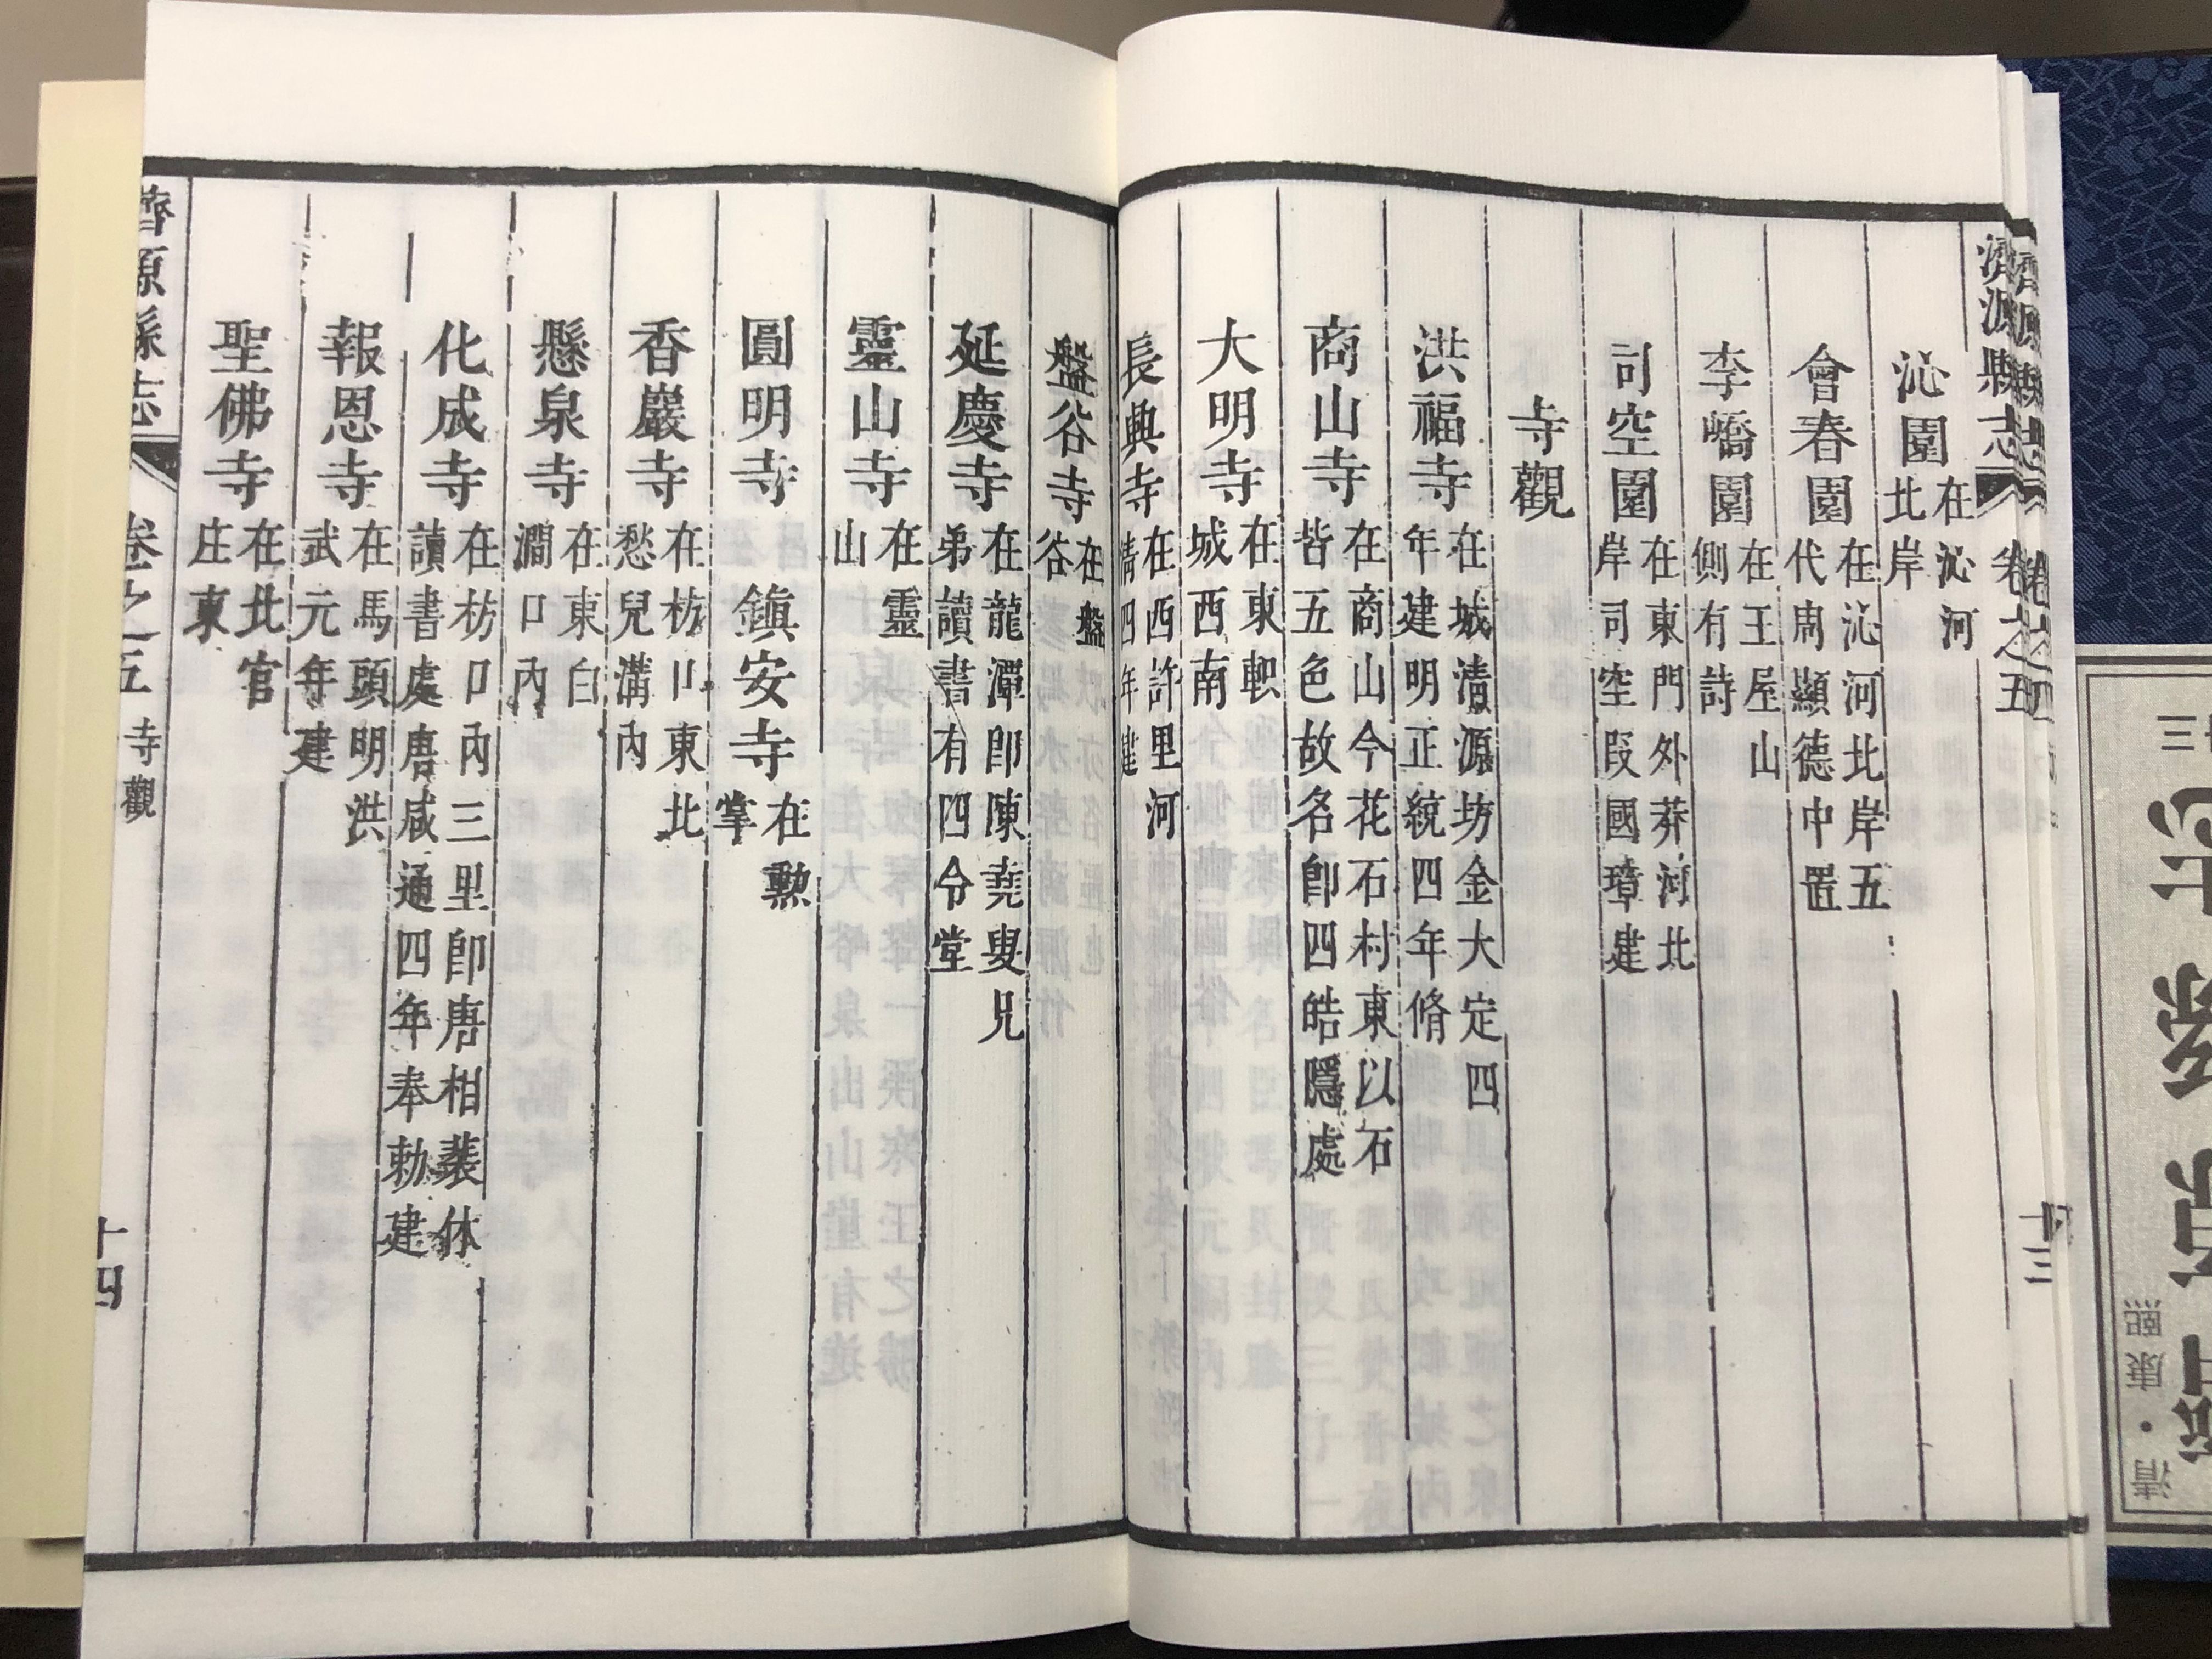 濟源縣志 卷之五 十三
沁園 在沁河北岸
會春園 在沁河北岸五代周顯德中置
李嶠園 在王屋山側有詩
司空園 在東門外莽河北岸司空段國璋建
寺觀
洪福寺 在城清源坊金大定四年建明正統四年脩
商山寺 在商山今花石村東以石皆五色故名卽四皓隱處
大明寺 在東軹城西南
長興寺 在西許里河清四年建
盤谷寺 在盤谷
延慶寺 在龍潭卽陳堯叟兄弟讀書有四令堂
靈山寺 在靈山
圓明寺 鎮安寺 在勲掌
香巖寺 在枋口東北愁兒溝內
懸泉寺 在東白澗口內
化成寺 在枋口內三里卽唐相裴休讀書處唐咸通四年奉勅建
報恩寺 在馬頭明洪武元年建
聖佛寺 在北官庄東
濟源縣志 卷之五 寺觀 十四
清·康熙